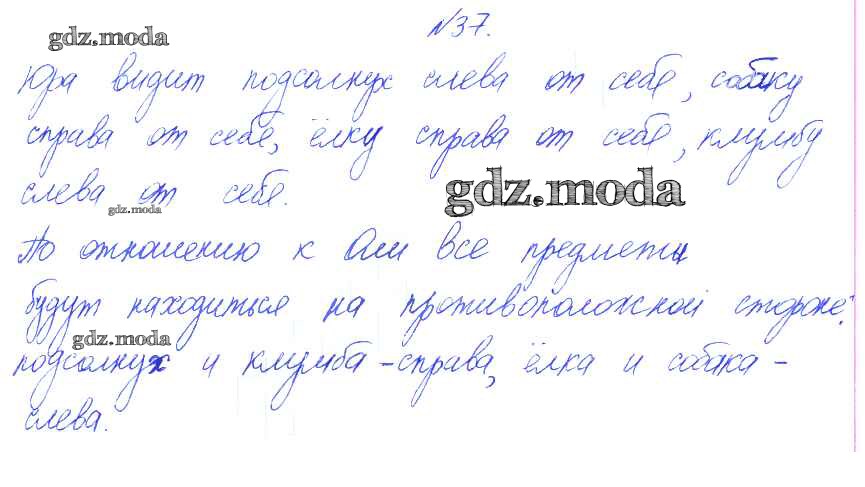 №37.
gdz.moda
Юра видит подсолнух слева от себя, собаку
справа от себя, ёлку справа от себя, клумбу
слева от себя.
gdz.moda
gdz.moda
По отношению к Оли все предметы
будут находиться на противоположной стороне:
gdz.moda
подсолнух и клумба - справа, ёлка и собака -
слева.